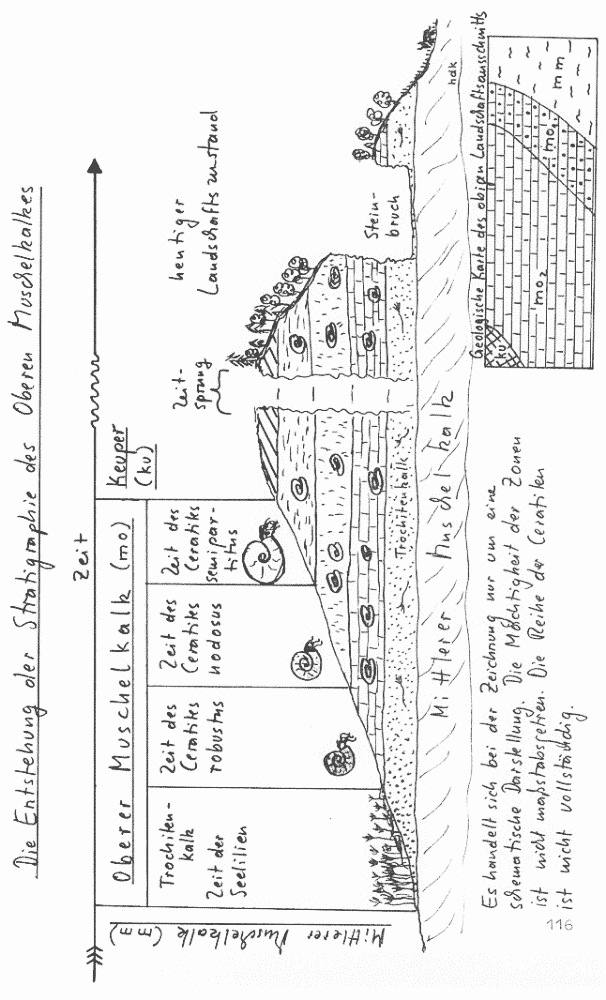 Die Entstehung der Stratigraphie des Oberen Muschelkalkes
Zeit
Mittlerer Muschelkalk (mm)
Oberer Muschelkalk (mo)
Keuper
(ku)
Trochiten-
kalk
Zeit der
Seelilien
Zeit des
Ceratites
robustus
Zeit des
Ceratites
nodosus
Zeit des
Ceratites
semipar-
titus
Zeit-
sprung
heutiger
Landschaftszustand
Stein-
bruch
Trochitenkalk
Mittlerer Muschelkalk
hdk
Es handelt sich bei der Zeichnung nur um eine
schematische Darstellung. Die Mächtigkeit der Zonen
ist nicht maßstabsgetreu. Die Reihe der Ceratiten
ist nicht vollständig.
Geologische Karte des obigen Landschaftsausschnitts
ku
mo2
mo1
mm
116